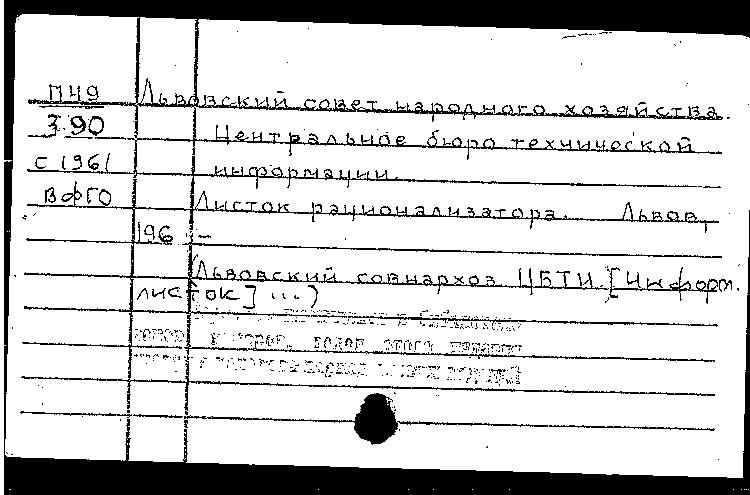 П49 Львовский совет народного хозяйства.
3.90 Центральное бюро технической
с 1961 информации.
ВФГО Листок рационализатора. Львов,
196 -
(Львовский совнархоз ЦБТИ. [Информ.
листок] ...)